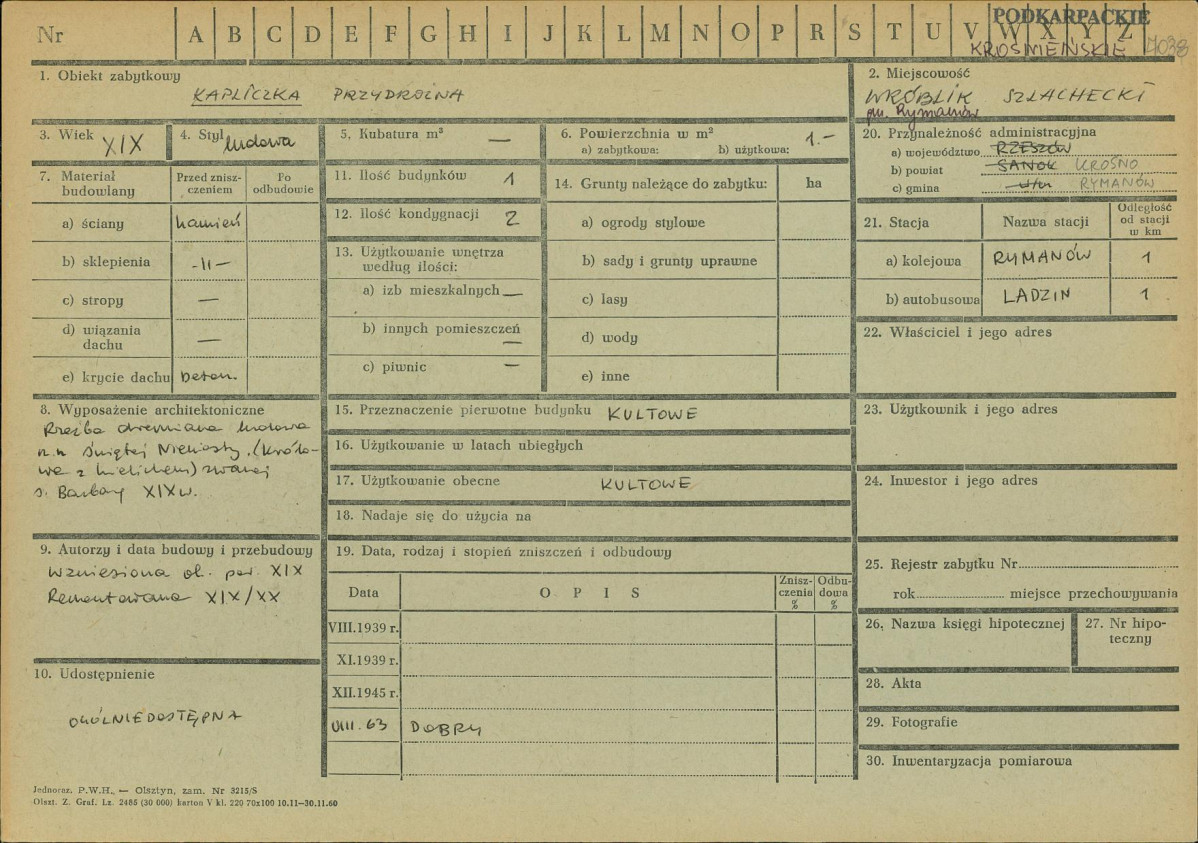 Nr A B C D E F G H I J K L M N O P R S T U V W X Y Z
PODKARPACKIE
KROŚNIEŃSKIE 4038
1. Obiekt zabytkowy
KAPLICZKA PRZYDROŻNA
2. Miejscowość
WRÓBLIK SZLACHECKI
gm. Rymanów
3. Wiek XIX
4. Styl ludowa
5. Kubatura m³ —
6. Powierzchnia w m² 1.-
a) zabytkowa: b) użytkowa:
7. Materiał budowlany
Przed znisz-
czeniem
Po
odbudowie
a) ściany kamień
b) sklepienia -11-
c) stropy —
d) wiązania
dachu —
e) krycie dachu beton.
8. Wyposażenie architektoniczne
Rzeźba drewniana ludowa
n.n Świętej Niewiasty, (Królo-
wa z kielichem) zwanej
s. Barbary XIX w.
9. Autorzy i data budowy i przebudowy
Wzniesiona ok. poł. XIX
Remontowana XIX/XX
10. Udostępnienie
OGÓLNIE DOSTĘPNA
11. Ilość budynków 1
12. Ilość kondygnacji 2
13. Użytkowanie wnętrza
według ilości:
a) izb mieszkalnych —
b) innych pomieszczeń
—
c) piwnic —
14. Grunty należące do zabytku: ha
a) ogrody stylowe
b) sady i grunty uprawne
c) lasy
d) wody
e) inne
15. Przeznaczenie pierwotne budynku KULTOWE
16. Użytkowanie w latach ubiegłych
17. Użytkowanie obecne KULTOWE
18. Nadaje się do użycia na
19. Data, rodzaj i stopień zniszczeń i odbudowy
Data
O P I S
Znisz-
czenia
%
Odbu-
dowa
%
VIII.1939 r.
XI.1939 r.
XII.1945 r.
VIII.63 DOBRY
20. Przynależność administracyjna
a) województwo RZESZÓW
b) powiat SANOK KROSNO
c) gmina RYMANÓW
21. Stacja
Nazwa stacji
Odległość
od stacji
w km
a) kolejowa RYMANÓW 1
b) autobusowa LADZIN 1
22. Właściciel i jego adres
23. Użytkownik i jego adres
24. Inwestor i jego adres
25. Rejestr zabytku Nr
rok miejsce przechowywania
26. Nazwa księgi hipotecznej
27. Nr hipo-
teczny
28. Akta
29. Fotografie
30. Inwentaryzacja pomiarowa
Jednoraz. P.W.H. — Olsztyn, zam. Nr 3215/S
Olszt. Z. Graf. Lz. 2485 (30 000) karton V kl. 220 70x100 10.11—30.11.60